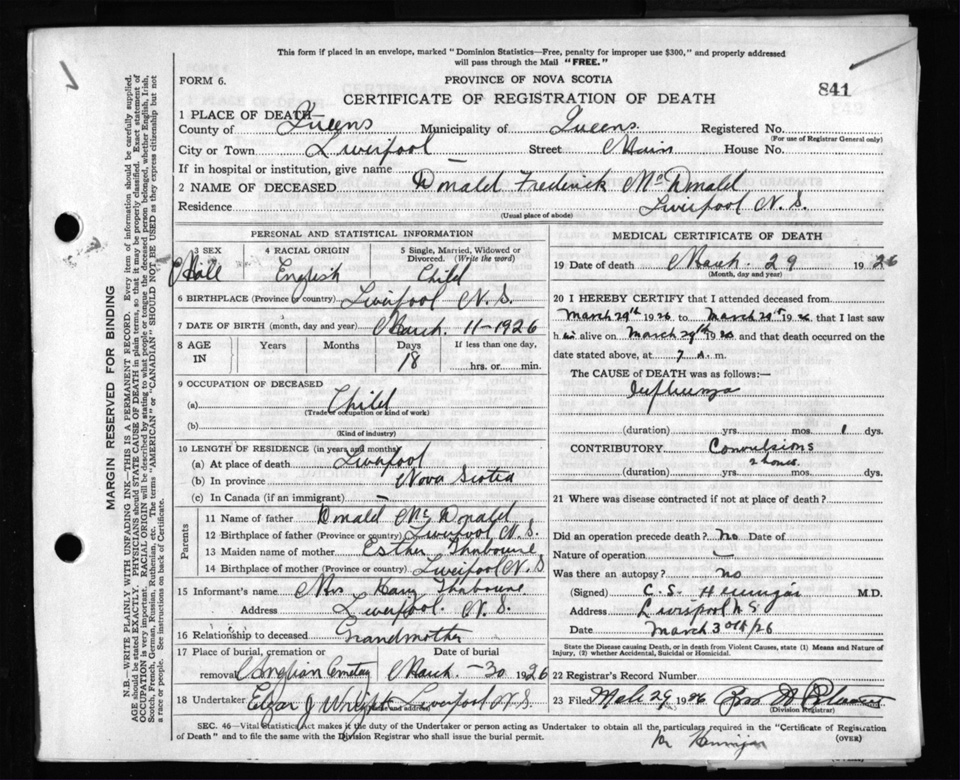 This form if placed in an envelope, marked "Dominion Statistics—Free, penalty for improper use $300," and properly addressed
will pass through the Mail "FREE."
FORM 6.
PROVINCE OF NOVA SCOTIA
841
CERTIFICATE OF REGISTRATION OF DEATH
1 PLACE OF DEATH—
County of Queens Municipality of Queens Registered No.
(For use of Registrar General only)
City or Town Liverpool Street Main House No.
If in hospital or institution, give name —
2 NAME OF DECEASED Donald Fredrick McDonald
Residence Liverpool N. S.
(Usual place of abode)
PERSONAL AND STATISTICAL INFORMATION
3 SEX 4 RACIAL ORIGIN 5 Single, Married, Widowed or
Divorced. (Write the word)
Male English Child
6 BIRTHPLACE (Province or country) Liverpool N. S.
7 DATE OF BIRTH (month, day and year) March 11-1926
8 AGE IN Years Months Days If less than one day,
18 hrs. or min.
9 OCCUPATION OF DECEASED
(a) Child
(Trade or occupation or kind of work)
(b)
(Kind of industry)
10 LENGTH OF RESIDENCE (in years and months)
(a) At place of death Liverpool
(b) In province Nova Scotia
(c) In Canada (if an immigrant) —
Parents
11 Name of father Donald McDonald
12 Birthplace of father (Province or country) Liverpool N. S.
13 Maiden name of mother Esther
14 Birthplace of mother (Province or country) Liverpool N S
15 Informant's name Mrs Harry
Address Liverpool. N. S.
16 Relationship to deceased Grandmother
17 Place of burial, cremation or Date of burial
removal Anglian Cemetay March-30 1926
18 Undertaker J Liverpool N. S.
(Name and address)
MEDICAL CERTIFICATE OF DEATH
19 Date of death March. 29 1926
(Month, day and year)
20 I HEREBY CERTIFY that I attended deceased from
March 29th 1926 to March 29th 1926 that I last saw
h im alive on March 29th 1926 and that death occurred on the
date stated above, at 7 A. m.
The CAUSE of DEATH was as follows:—
Influenza
(duration) yrs. mos. 1 dys.
CONTRIBUTORY Convulsions
2 hours.
(duration) yrs. mos. dys.
21 Where was disease contracted if not at place of death?
Did an operation precede death? no Date of
Nature of operation —
Was there an autopsy? no
(Signed) C. S. Hennigar M.D.
Address Liverpool N.S
Date March 30th/26
State the Disease causing Death, or in death from Violent Causes, state (1) Means and Nature of
Injury, (2) whether Accidental, Suicidal or Homicidal.
22 Registrar's Record Number
23 Filed Mch 29 1926
(Division Registrar)
SEC. 46—Vital Statistics Act makes it the duty of the Undertaker or person acting as Undertaker to obtain all the particulars required in the "Certificate of Registration
of Death" and to file the same with the Division Registrar who shall issue the burial permit.
(OVER)
Dr Hennigar
MARGIN RESERVED FOR BINDING
N.B.—WRITE PLAINLY WITH UNFADING INK—THIS IS A PERMANENT RECORD. Every item of information should be carefully supplied.
AGE should be stated EXACTLY. PHYSICIANS should STATE CAUSE OF DEATH in plain terms, so that it may be properly classified. Exact statement of
OCCUPATION is very important. RACIAL ORIGIN will be described by stating to what people or tongue the deceased person belonged, whether English, Irish,
Scotch, French, German, Russian, Ruthenian, etc. The terms "AMERICAN" or "CANADIAN" SHOULD NOT BE USED as they express citizenship but not
a race or people. See instructions on back of Certificate.